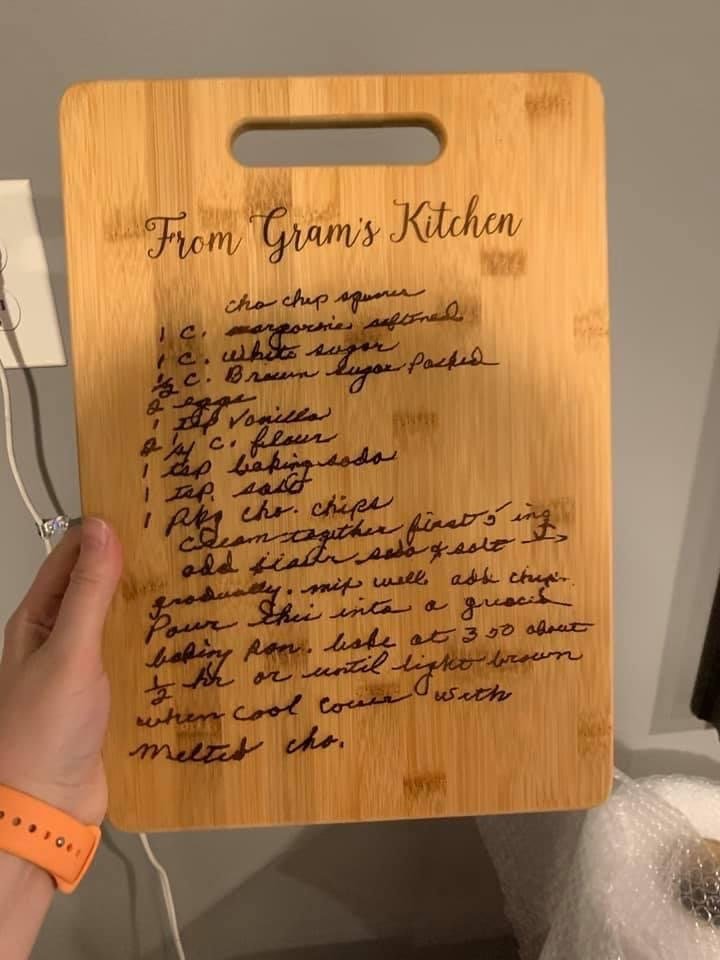 From Gram's Kitchen
cho chip squares
1 C. margarine softened
1 C. white sugar
1/2 C. Brown sugar packed
2 eggs
1 tsp vanilla
2 1/4 C. flour
1 tsp baking soda
1 tsp. salt
1 pkg cho. chips
Cream together first 5 ing
add flour soda & salt
gradually. mix well. add chips.
Pour this into a greased
baking pan. bake at 350 about
1/2 hr or until light brown
when cool cover with
melted cho.